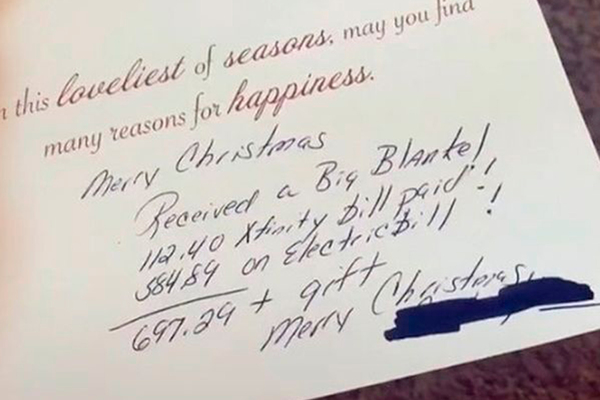 n this loveliest of seasons, may you find
many reasons for happiness.
Merry Christmas
Received a Big Blanket
112.40 Xfinity bill paid!
584.89 on Electric Bill!
697.29 + gift
Merry Christmas,